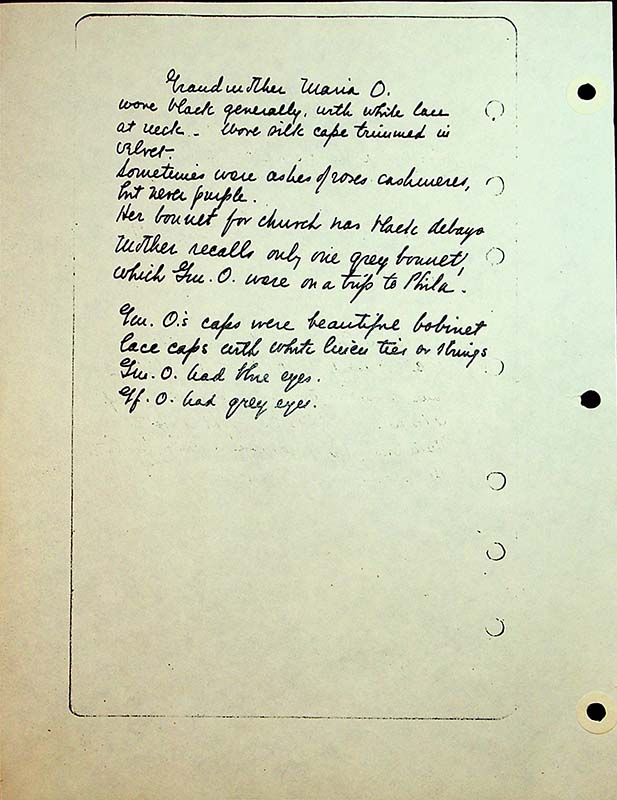 Grandmother Maria O.
wore black generally, with white lace
at neck - Wore silk cape trimmed in
velvet -
Sometimes wore ashes of roses cashmeres,
but never purple.
Her bonnet for church was black
Mother recalls only one grey bonnet,
which Gm. O. wore on a trip to Phila.
Gm. O.'s caps were beautiful bobinet
lace caps with white linen ties or strings
Gm. O. had blue eyes.
Gf. O. had grey eyes.